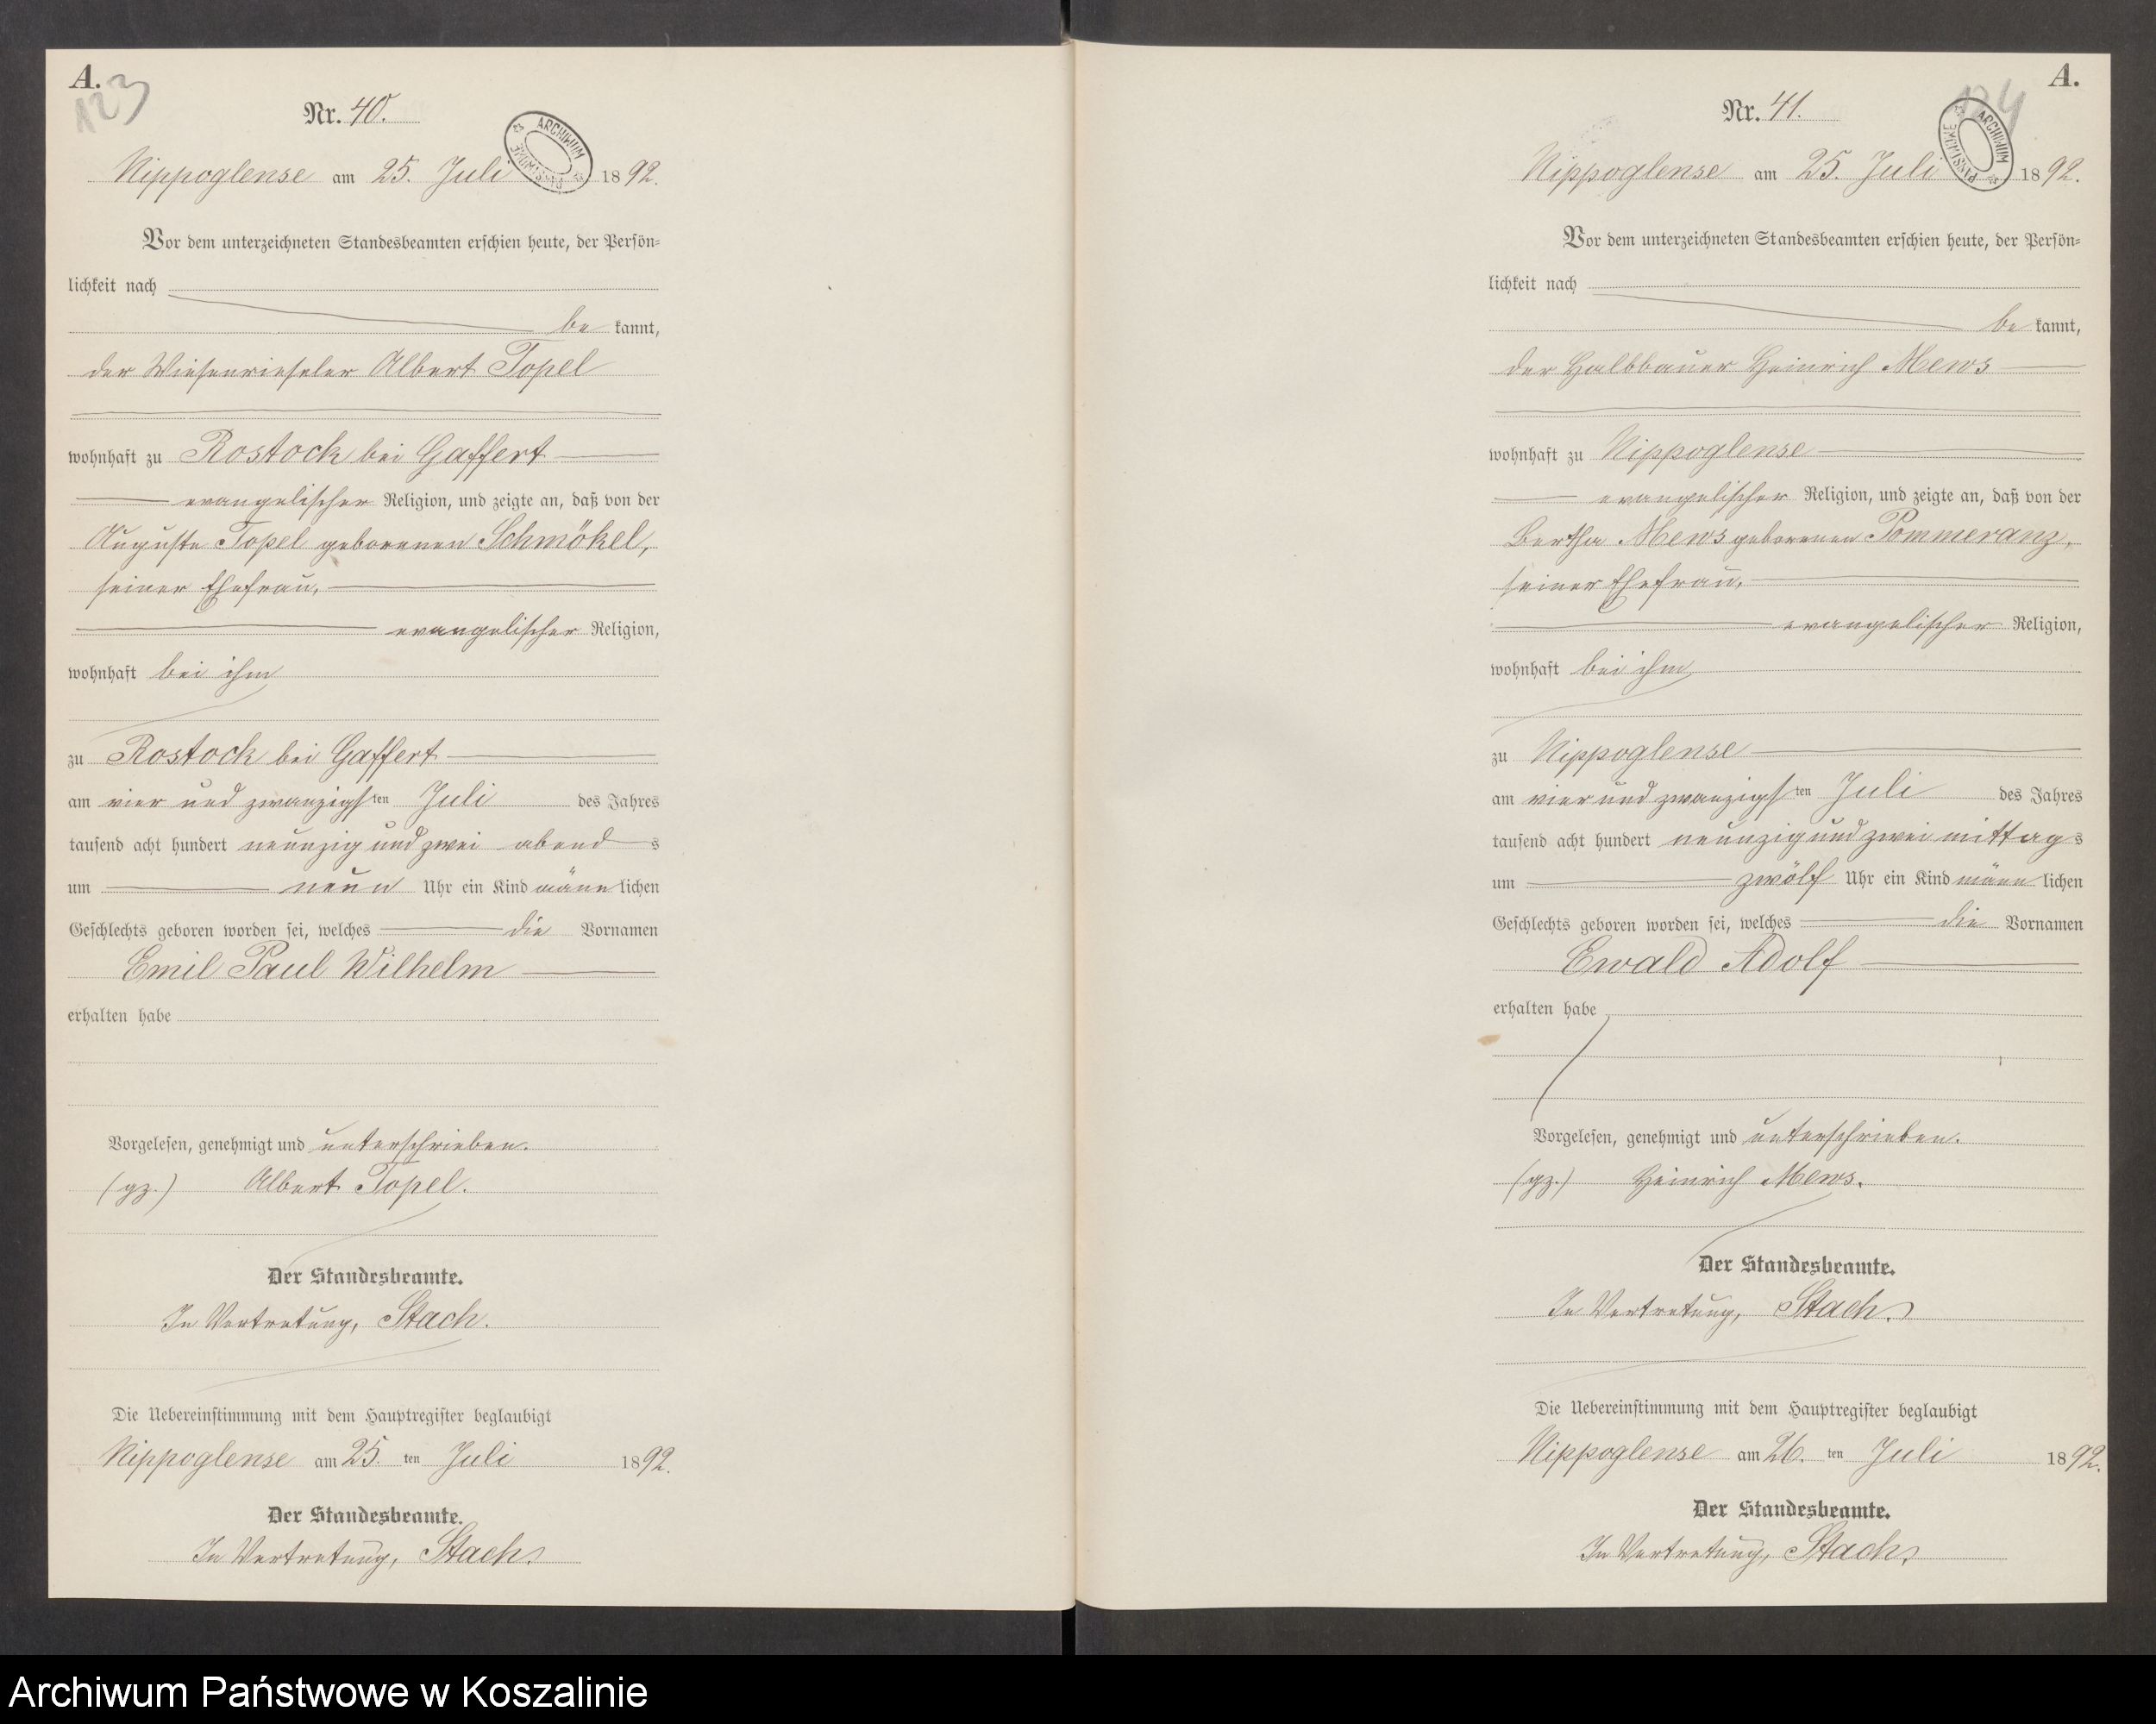 A.
123
Nr. 40.
ARCHIWUM PAŃSTWOWE
Nippoglense am 25. Juli 1892.
Vor dem unterzeichneten Standesbeamten erschien heute, der Persön-
lichkeit nach
be kannt,
der Wiesenrieseler Albert Topel
wohnhaft zu Rostock bei Gaffert
evangelischer Religion, und zeigte an, daß von der
Auguste Topel geborenen Schmökel,
seiner Ehefrau,
evangelischer Religion,
wohnhaft bei ihm
zu Rostock bei Gaffert
am vier und zwanzigsten Juli des Jahres
tausend acht hundert neunzig und zwei abends
um neun Uhr ein Kind männlichen
Geschlechts geboren worden sei, welches die Vornamen
Emil Paul Wilhelm
erhalten habe
Vorgelesen, genehmigt und unterschrieben.
(gz.) Albert Topel.
Der Standesbeamte.
In Vertretung, Stach.
Die Uebereinstimmung mit dem Hauptregister beglaubigt
Nippoglense am 25. ten Juli 1892.
Der Standesbeamte.
In Vertretung, Stach.
A.
124
Nr. 41.
ARCHIWUM PAŃSTWOWE
Nippoglense am 25. Juli 1892.
Vor dem unterzeichneten Standesbeamten erschien heute, der Persön-
lichkeit nach
be kannt,
der Halbbauer Heinrich Mews
wohnhaft zu Nippoglense
evangelischer Religion, und zeigte an, daß von der
Bertha Mews geborenen Pommeranz,
seiner Ehefrau,
evangelischer Religion,
wohnhaft bei ihm
zu Nippoglense
am vier und zwanzigsten Juli des Jahres
tausend acht hundert neunzig und zwei mittags
um zwölf Uhr ein Kind männlichen
Geschlechts geboren worden sei, welches die Vornamen
Ewald Adolf
erhalten habe
Vorgelesen, genehmigt und unterschrieben.
(gz.) Heinrich Mews.
Der Standesbeamte.
In Vertretung, Stach.
Die Uebereinstimmung mit dem Hauptregister beglaubigt
Nippoglense am 26. ten Juli 1892.
Der Standesbeamte.
In Vertretung, Stach.
Archiwum Państwowe w Koszalinie